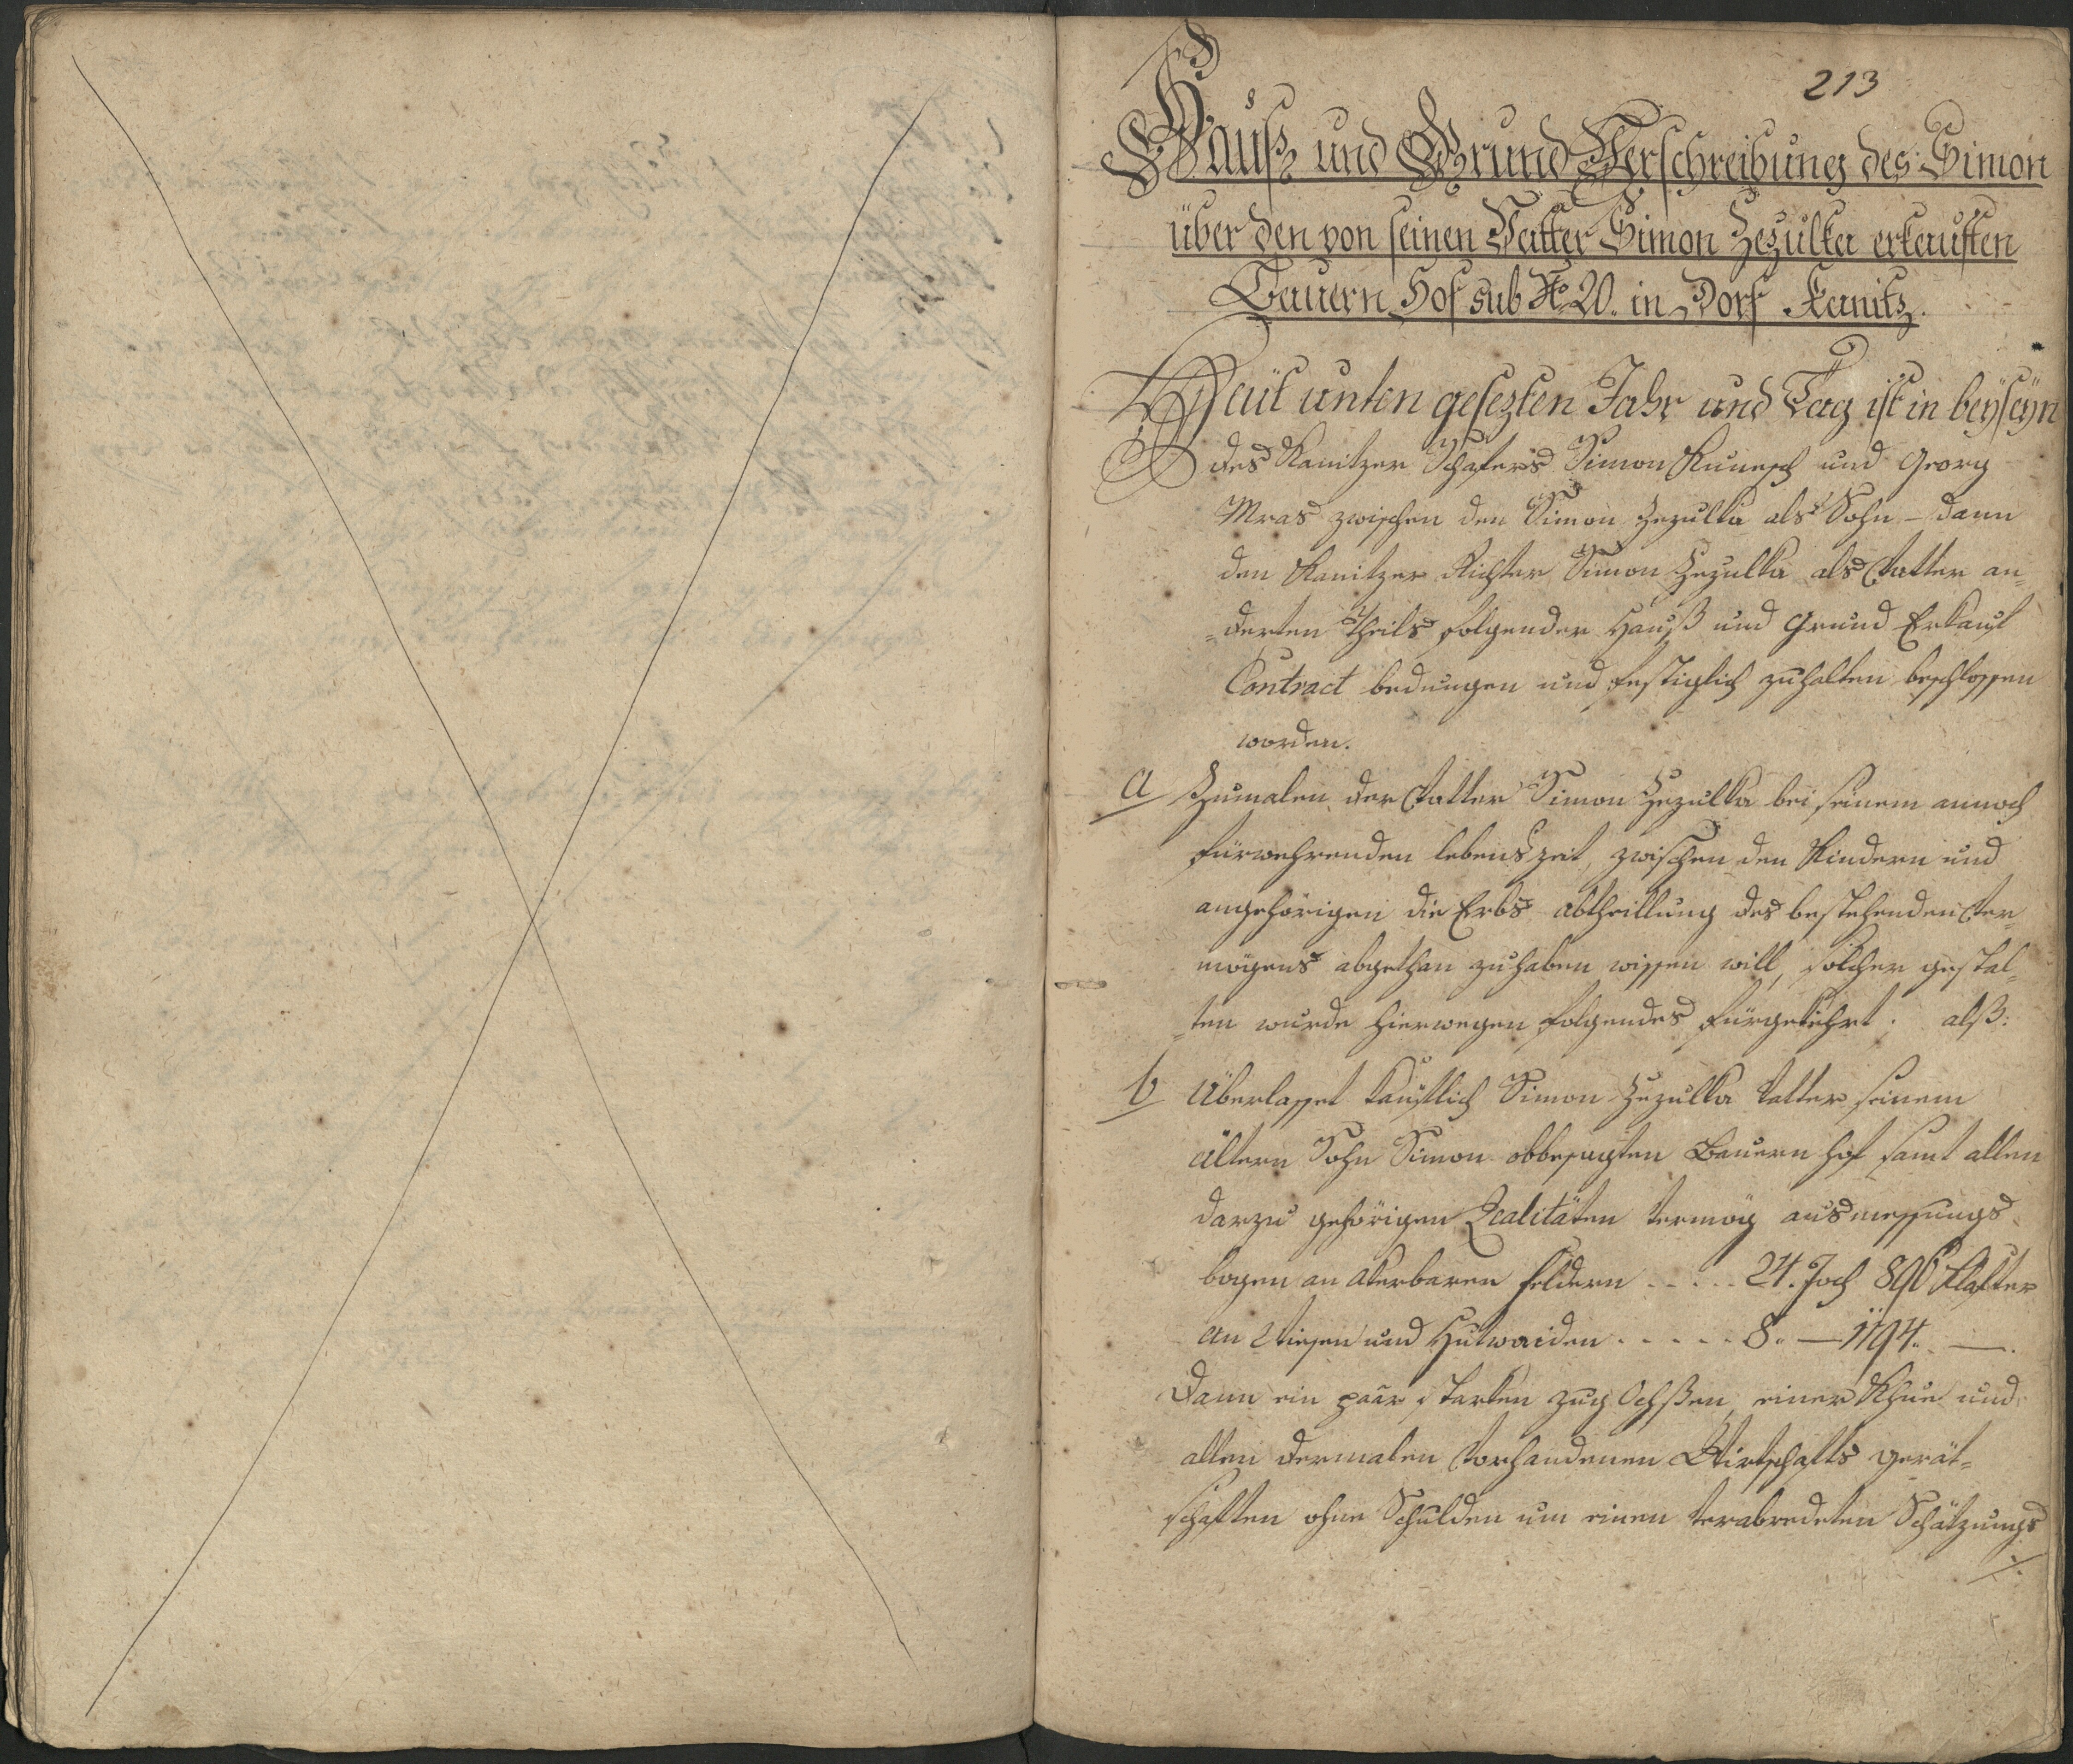 213
Hauß und Grund Verschreibung des Simon
über den von seinen Vatter Simon Zezulka erkauften
Bauern Hof sub No 20. in Dorf Kanitz.
Heüt unten gesezten Jahr und Tag ist in beÿseÿn
des Kanitzer Simon Kunesch und Georg
Mras zwischen den Simon Zezulka als Sohn – dann
den Kanitzer Richter Simon Zezulka als Vatter an=
=derten Theils folgender Hauß und Grund Erkauf
Contract bedungen und festiglich zuhalten beschlossen
worden.
a Zumalen der Vatter Simon Zezulka bei seinem annoch
fürwehrenden lebenszeit, zwischen den Kindern und
angehörigen die Erbs abtheillung des bestehenden Ver=
mögens abgethan zuhaben wissen will, solcher gestal=
=ten wurde hierwegen folgendes fürgekehrt. alß:
b Überlasset kauflich Simon Zezulka Vatter seinem
ältern Sohn Simon obbesagten Bauern hof samt allen
darzu gehörigen Realitäten vermög ausmessungs
bogen an akerbaren feldern - - . - . 24. Joch 896 Klafter
an Wiesen und Hutwaiden . - - - - . 8. — 1194. —.
Dann ein paar starken zug Ochßen einer Khue und
allen dermalen vorhandenen Wirtschafts gerät=
schaften ohne Schulden um einen verabredeten Schätzungs
./.